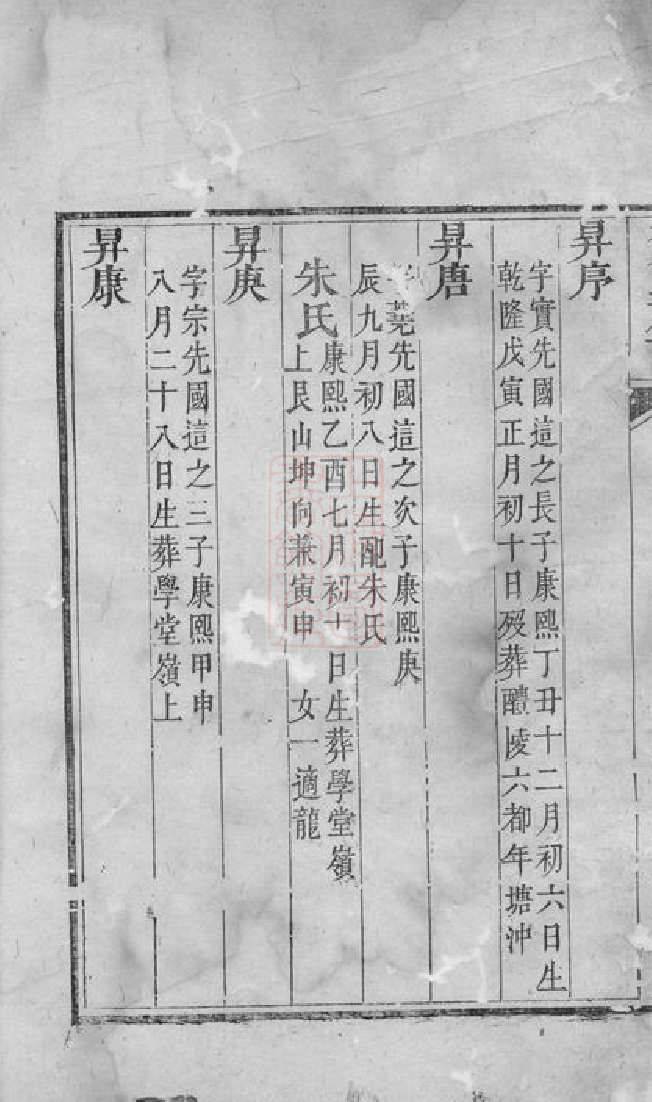 昇序
字實先國這之長子康熙丁丑十二月初六日生
乾隆戊寅正月初十日歿葬醴陵六都年塘沖
昇唐
字堯先國這之次子康熙庚
辰九月初八日生配朱氏
朱氏
康熙乙酉七月初十日生葬學堂嶺
上艮山坤向兼寅申 女一適龍
昇庚
字宗先國這之三子康熙甲申
八月二十八日生葬學堂嶺上
昇康